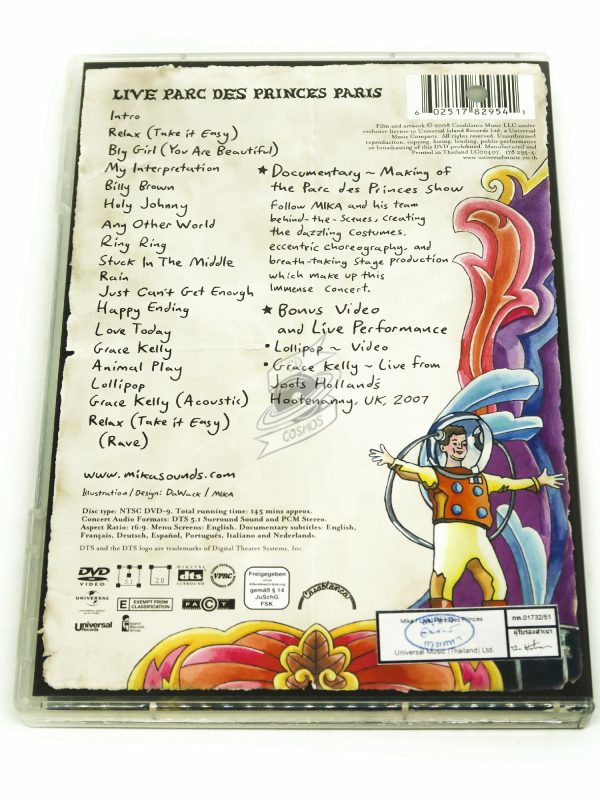 LIVE PARC DES PRINCES PARIS
Intro
Relax (Take it Easy)
Big Girl (You Are Beautiful)
My Interpretation
Billy Brown
Holy Johnny
Any Other World
Ring Ring
Stuck In The Middle
Rain
Just Can't Get Enough
Happy Ending
Love Today
Grace Kelly
Animal Play
Lollipop
Grace Kelly (Acoustic)
Relax (Take it Easy)
(Rave)
www.mikasounds.com
Illustration / Design: DaWack / MIKA
6 02517 82954 1
Film and artwork © 2008 Casablanca Music LLC under
exclusive license to Universal Island Records Ltd. a Universal
Music Company. All Rights Reserved. Unauthorised
reproduction, copying, hiring, lending, public performance
or broadcasting of this DVD prohibited. Manufactured and
Printed in Thailand
www.universalmusic.co.th
★ Documentary ~ Making of
the Parc des Princes Show
Follow MIKA and his team
behind-the-scenes, creating
the dazzling costumes,
eccentric choreography, and
breath-taking stage production
which make up this
immense concert.
★ Bonus Video
and Live Performance
• Lollipop ~ Video
• Grace Kelly ~ Live from
Jools Holland's
Hootenanny, UK, 2007
COSMOS
Disc type: NTSC DVD-9. Total running time: 145 mins approx.
Concert Audio Formats: DTS 5.1 Surround Sound and PCM Stereo.
Aspect Ratio: 16:9. Menu Screens: English. Documentary subtitles: English,
Français, Deutsch, Español, Português, Italiano and Nederlands.
DTS and the DTS logo are trademarks of Digital Theater Systems, Inc.
DVD
VIDEO
5.1
2.0
DIGITAL
dts
SURROUND
VPRC
Freigegeben
ohne
Altersbeschränkung
gemäß § 14
JuSchG
FSK
Casablanca
UNIVERSAL
E EXEMPT FROM
CLASSIFICATION
PACT
Universal
Records
Island
Records
Group
Mika / Live Parc Des Princes
Universal Music (Thailand) Ltd.
กท.01732/51
ผู้รับรองสำเนา